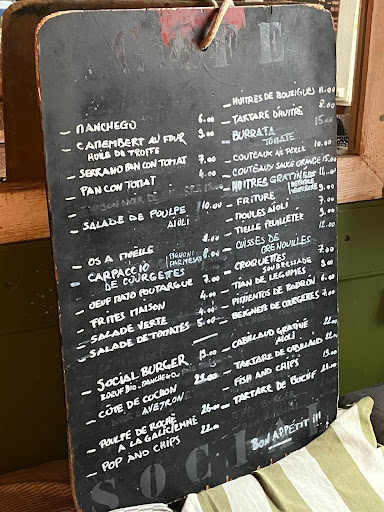 - MANCHEGO 6.00
- CAMEMBERT AU FOUR 9.00
HUILE DE TRUFFE
- SERRANO PAN CON TOMAT 7.00
- PAN CON TOMAT 4.00
- SALADE DE POULPE 10.00
AIOLI
- OS A MOËLLE 8.00
- CARPACCIO DE COURGETTES PIGNONS PARMESAN 8.00
- OEUF MATO POUTARGUE 7.00
- FRITES MAISON 4.00
- SALADE VERTE 4.00
- SALADE DE TOMATES 5.00
- SOCIAL BURGER 19.00
BOEUF BIO, MANCHEGO,
- CÔTE DE COCHON 25.00
AVEYRON
- POULPE DE ROCHE 26.00
A LA GALICIENNE
- POP AND CHIPS 22.00
- HUITRES DE BOUZIGUES 11.00
- TARTARE D'HUITRE 8.00
- BURRATA 15.00
TOMATE
- COUTEAUX AIL PERSIL 14.00
- COUTEAUX SAUCE ORANGE 15.00
- HUITRES GRATINÉES 11.00
- FRITURE 9.00
- MOULES AIOLI 9.00
- TIELLE FEUILLETER 9.00
- CUISSES DE GRENOUILLES 12.00
- CROQUETTES 7.00
SOUBRESSADE
- TIAN DE LEGUMES 8.00
- PIMIENTOS DE PADRÓN 6.00
- BEIGNETS DE COURGETTES 7.00
- CABILLAUD GRATINÉ 22.00
AIOLI
- TARTARE DE CABILLAUD 22.00
- FISH AND CHIPS 19.00
- TARTARE DE BOEUF 21.00
BON APPÉTIT !!!
SOCI